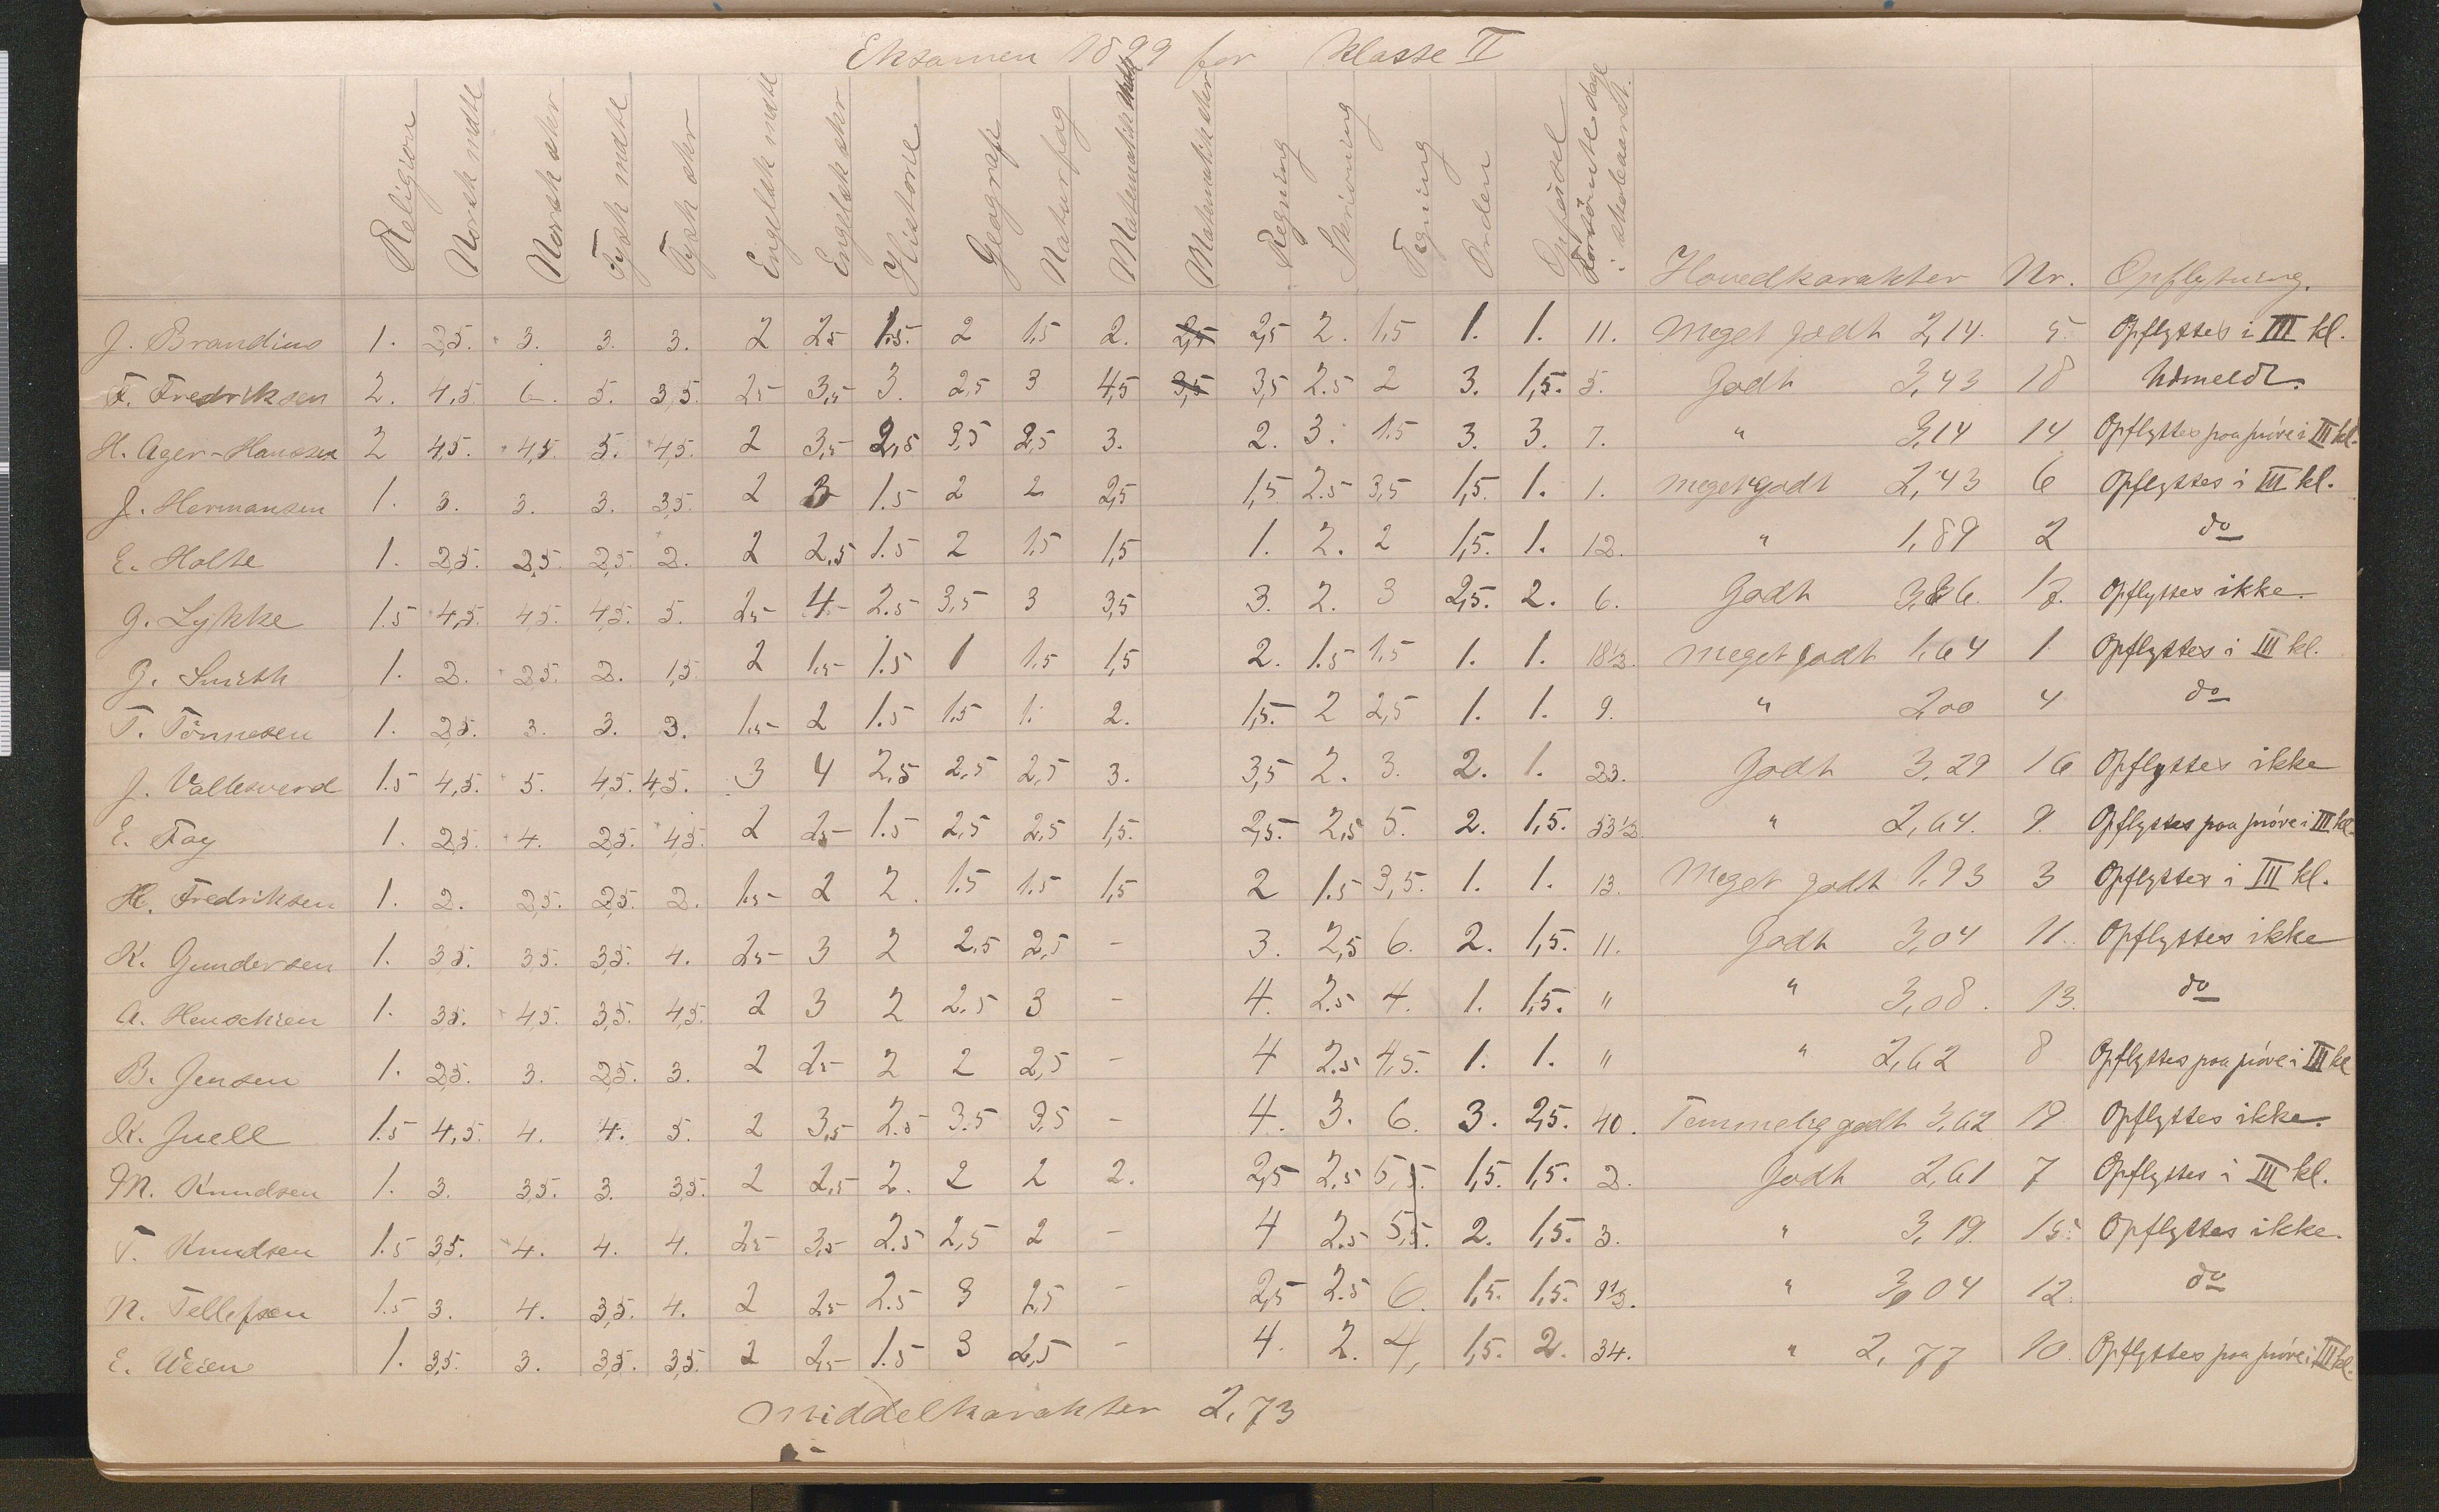 Eksamen 1899 for Klasse II
Religion Norsk mdtl Norsk skr Tysk mdtl Tysk skr Engelsk mdtl Engelsk skr Historie Geograf Naturfag Matematik mdtl Matematik skr Regning Skrivning Tegning Orden Opførsel Forsømte dage i skoleaaret. Hovedkarakter Nr. Opflytning.
J. Brandius 1. 2,5. 3. 3. 3. 2 2,5 1.5. 2 1,5 2. 2,5 2,5 2. 1,5 1. 1. 11. Meget godt 2,14. 5. Opflyttes i III kl.
F. Fredriksen 2. 4,5 6. 5. 3,5. 2,5 3,5 3. 2,5 3 4,5 3,5 3,5 2.5 2 3. 1,5. 5. Godt 3,43 18 Udmeldt.
H. Ager-Hanssen 2 4,5. 4,5. 5. 4,5. 2 3,5 2,5 3,5 2,5 3. 2. 3. 1.5 3. 3. 7. " 3,14 14 Opflyttes paa prøve i III kl.
J. Hermansen 1. 3. 3. 3. 3,5. 2 3 1.5 2 2 2,5 1,5 2.5 3,5 1,5. 1. 1. Meget godt 2,43 6 Opflyttes i III kl.
E. Holte 1. 2,5. 2,5. 2,5. 2. 2 2,5 1.5 2 1,5 1,5 1. 2. 2 1,5. 1. 12. " 1,89 2 do
G. Lykke 1.5 4,5. 4,5. 4,5. 5. 2,5 4 2.5 3,5 3 3,5 3. 2. 3 2,5. 2. 6. Godt 17. Opflyttes ikke.
J. Smith 1. 2. 2,5. 2. 1,5. 2 1,5 1.5 1 1.5 1,5 2. 1.5 1,5 1. 1. 18½. Meget godt 1,64 1 Opflyttes i III kl.
T. Tönnesen 1. 2,5. 3. 3. 3. 1,5 2 1.5 1.5 1. 2. 1,5. 2 2,5 1. 1. 9. " 2,00 4 do
J. Vallesverd 1.5 4,5. 5. 4,5. 4,5. 3 4 2,5 2,5 2,5 3. 3,5 2. 3. 2. 1. 23. Godt 3,29 16 Opflyttes ikke
E. Fay 1. 2,5. 4. 2,5. 4,5. 2 2,5 1.5 2,5 2,5 1,5. 2,5. 2,5 5. 2. 1,5. 53½. " 2,64. 9. Opflyttes paa prøve i III kl.
H. Fredriksen 1. 2. 2,5. 2,5. 2. 1,5 2 2. 1.5 1.5 1,5 2 1.5 3,5. 1. 1. 13. Meget godt 1,93 3 Opflyttes i III kl.
K. Gundersen 1. 3,5. 3,5. 3,5. 4. 2,5 3 2 2,5 2,5 – 3. 2,5 6. 2. 1,5. 11. Godt 3,04 11. Opflyttes ikke
A. Henschien 1. 3,5. 4,5. 3,5. 4,5. 2 3 2 2.5 3 – 4. 2.5 4. 1. 1,5. " " 3,08. 13. do
B. Jensen 1. 2,5. 3. 2,5. 3. 2 2,5 2 2 2,5 – 4 2.5 4,5. 1. 1. " " 2,62 8 Opflyttes paa prøve i III kl
K. Juell 1.5 4,5. 4. 4. 5. 2 3,5 2.5 3.5 3,5 – 4. 3. 6. 3. 2,5. 40. Temmelig godt 3,62 19 Opflyttes ikke.
M. Knudsen 1. 3. 3,5. 3. 3,5. 2 2,5 2. 2 2 2. 2,5 2.5 5,5. 1,5. 1,5. 2. Godt 2,61 7 Opflyttes i III kl.
T. Knudsen 1.5 3,5. 4. 4. 4. 2,5 3,5 2.5 2,5 2 – 4 2.5 5,5. 2. 1,5. 3. " 3,19. 15. Opflyttes ikke.
N. Tellefsen 1.5 3. 4. 3,5. 4. 2 2,5 2.5 3 2,5 – 2,5 2.5 6. 1,5. 1,5. 9½. " 3,04 12. do
E. Weien 1. 3,5. 3. 3,5. 3,5. 2 2,5 1.5 3 2,5 – 4. 2. 4, 1,5. 2. 34. " 2,77 10. Opflyttes paa prøve i III kl.
Middelkarakter 2,73